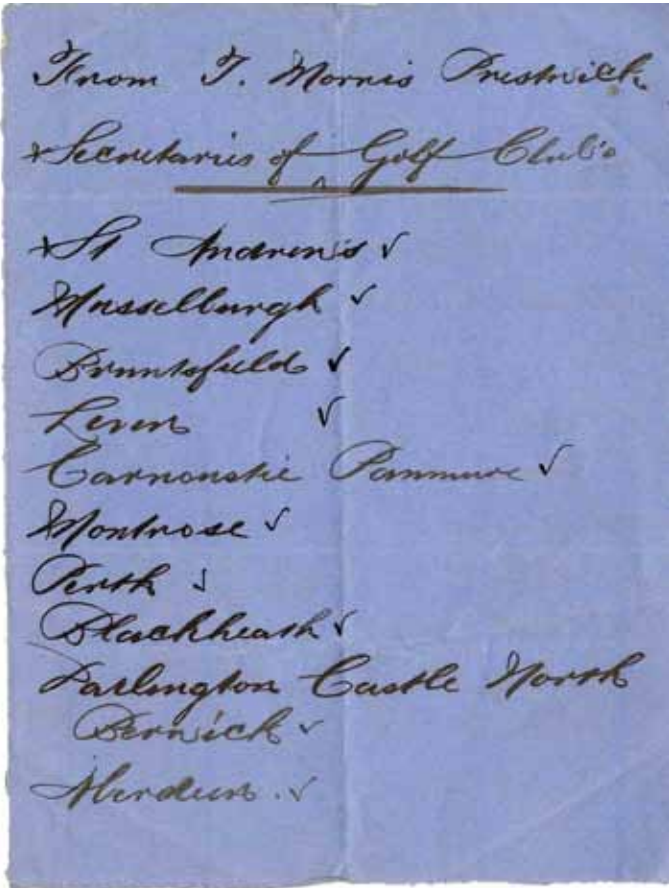 From T. Morris Prestwick
× Secretaries of Golf Club's
× St Andrew's ✓
Musselburgh ✓
Bruntsfield ✓
Leven ✓
Carnoustie Panmure ✓
Montrose ✓
Perth ✓
Blackheath ✓
Parlington Castle North
Berwick ✓
Aberdeen. ✓